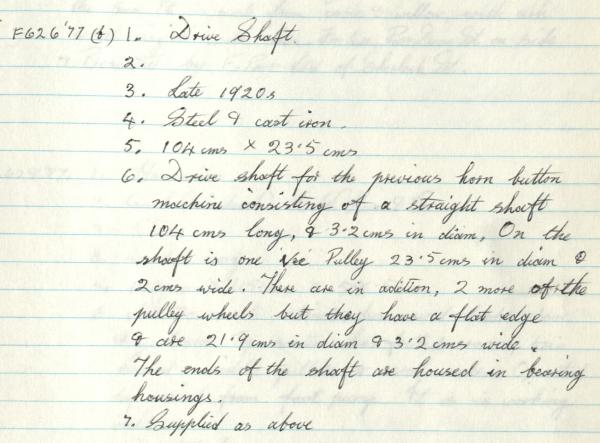 F626'77 (b) 1. Drive Shaft.
2.
3. Late 1920s
4. Steel & cast iron.
5. 104 cms × 23·5 cms
6. Drive shaft for the previous horn button
machine consisting of a straight shaft
104 cms long, & 3·2 cms in diam, On the
shaft is one Vee Pulley 23·5 cms in diam &
2 cms wide. There are in adition, 2 more of the
pulley wheels but they have a flat edge
& are 21·9 cms in diam & 3·2 cms wide.
The ends of the shaft are housed in bearing
housings.
7. Supplied as above